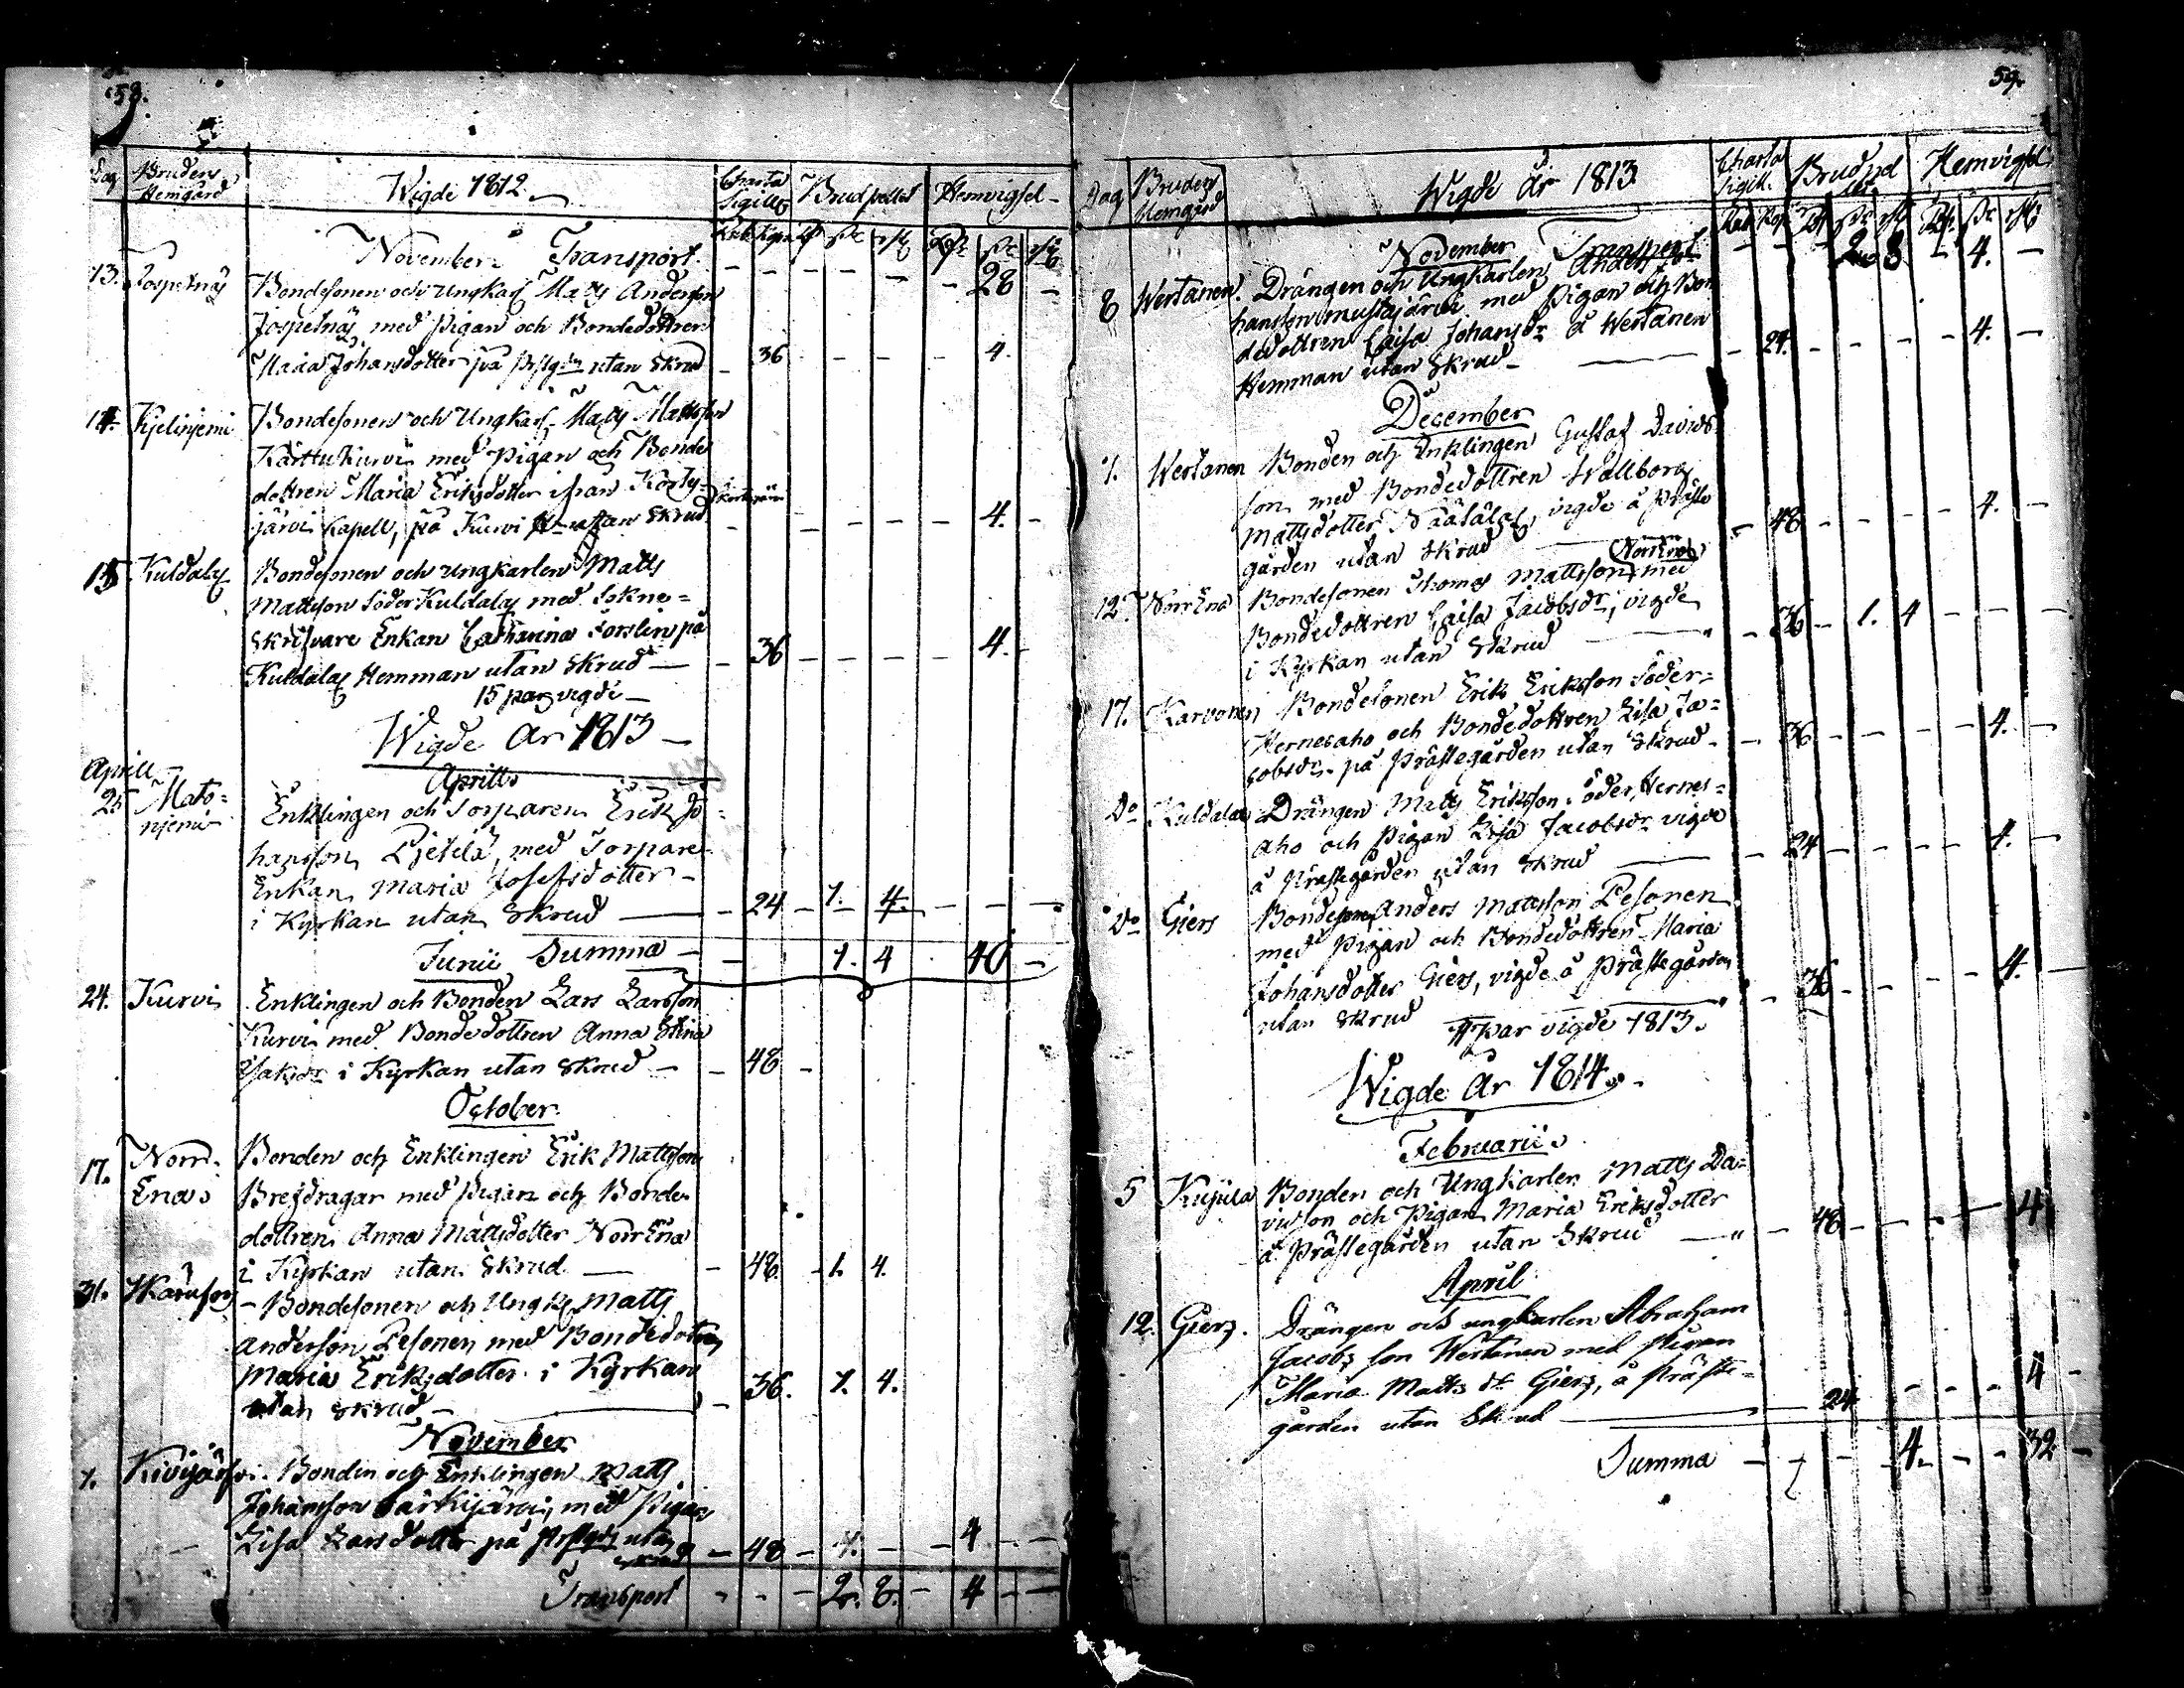 58.
Dag Bruden Hemgård Wigde 1812. Charta Sigill Brudpallat Hemvigsel
November Transport - - - - - - 28 -
13. Jospetnäs Bondesonen och Ungkarl Matts Andersson
Jospetnäs med Pigan och Bondedottren
Maria Johansdotter på utan Skrud - 36 - - - - 4.
14. Kjelinjemi Bondesonen och Ungkarl Matts Mattsson
Kärttu Kurvi med Pigan och Bonde
dottren Maria Eriksdotter ifrån Kortes-
järvi Kapell, på Kurvi utan Skrud - - - - - - 4. -
15 Kuldalas Bondesonen och ungkarlen Matts
Mattsson Söder Kuldalas med Sokne=
skrifvare Enkan Catharina Forslin på
Kuldalas Hemman utan Skrud - - 36 - - - - 4. -
15 par vigde -
Wigde År 1813 -
Aprill -
Aprill
25 Mato=
njemi Enklingen och Torparen Erik Jo=
hansson Pjetilä, med Torpare=
Enkan Maria Josefsdotter -
i Kyrkan utan Skrud - 24 - 1. 4. - - - -
Junii Summa - - 1. 4 40 -
24. Kurvi Enklingen och Bonden Lars Larsson
Kurvi med Bondedottren Anna Stina
Isaksdr i Kyrkan utan Skrud - - 48 -
October
17. Norr-
Ena Bonden och Enklingen Erik Mattsson
Bredragar med Pigan och Bonde-
dottren Anna Mattsdotter Norr Ena
i Kyrkan utan Skrud - - 48. - 1. 4.
31. Bondesonen och Ungk. Matts
Andersson Pesonen med Bondedottren
Maria Eriksdotter i Kyrkan
utan Skrud - - 36. 1. 4.
November
1. Kivijärfvi Bonden och Enklingen Matts
Johansson Särkijärvi, med Pigan
Lisa Larsdotter på utan
Skrud - 48 - 1. - - 4 - -
Transport - - - 2. 8. - 4 - -
59.
Dag Bruden Hemgård Wigde År 1813 Charta Sigill. Hemvigsel
November Transport - - 2 8 - 4. -
8 Wertanen. Drängen och Ungkarlen Anders Jo=
hansson Mustajärvi med Pigan och Bon
dedottren Caisa Johansdr å Wertanen
Hemman utan Skrud - - 24. - - - - 4. -
December
1. Wertanen Bonden och Enklingen Gustaf Davids=
son med Bondedottren Wallborg
Mattsdotter Näätälas, vigde å Präste
gården utan Skrud - 48 - - - - 4. -
12. Norr Ena Bondesonen Thomas Mattsson Norr Ena med
Bondedottren Caisa Jacobsdr, vigde
i Kyrkan utan Skrud - 36 - 1. 4 - - -
17. Karvonen Bondesonen Erik Eriksson Söder=
Hernesaho och Bondedottren Lisa Ja=
cobsdr. på Prästegården utan Skrud - - 36 - - - - 4. -
Do Kuldalas Drängen Matts Eriksson Söder Hernes=
aho och Pigan Lisa Jacobsdr vigde
å Prästegården utan Skrud - 24 - - - - 4. -
Do Giers Bondeson Anders Mattsson Pesonen
med Pigan och Bondedottren Maria
Johansdotter Giers, vigde å Prästegården
utan Skrud - 36 - - - - 4. -
11 par vigde 1813.
Wigde År 1814.
Februarii
5 Kujula Bonden och Ungkarlen Matts Da=
vidson och Pigan Maria Eriksdotter
å Prästegården utan Skrud - 48 - - - - 4
April
12. Giers. Drängen och ungkarlen Abraham
Jacobs son Wertanen med Pigan
Maria Matts dr Giers, å Präste=
gården utan Skrud - 24 - - - 4 -
Summa - - - 4. - - 32 -